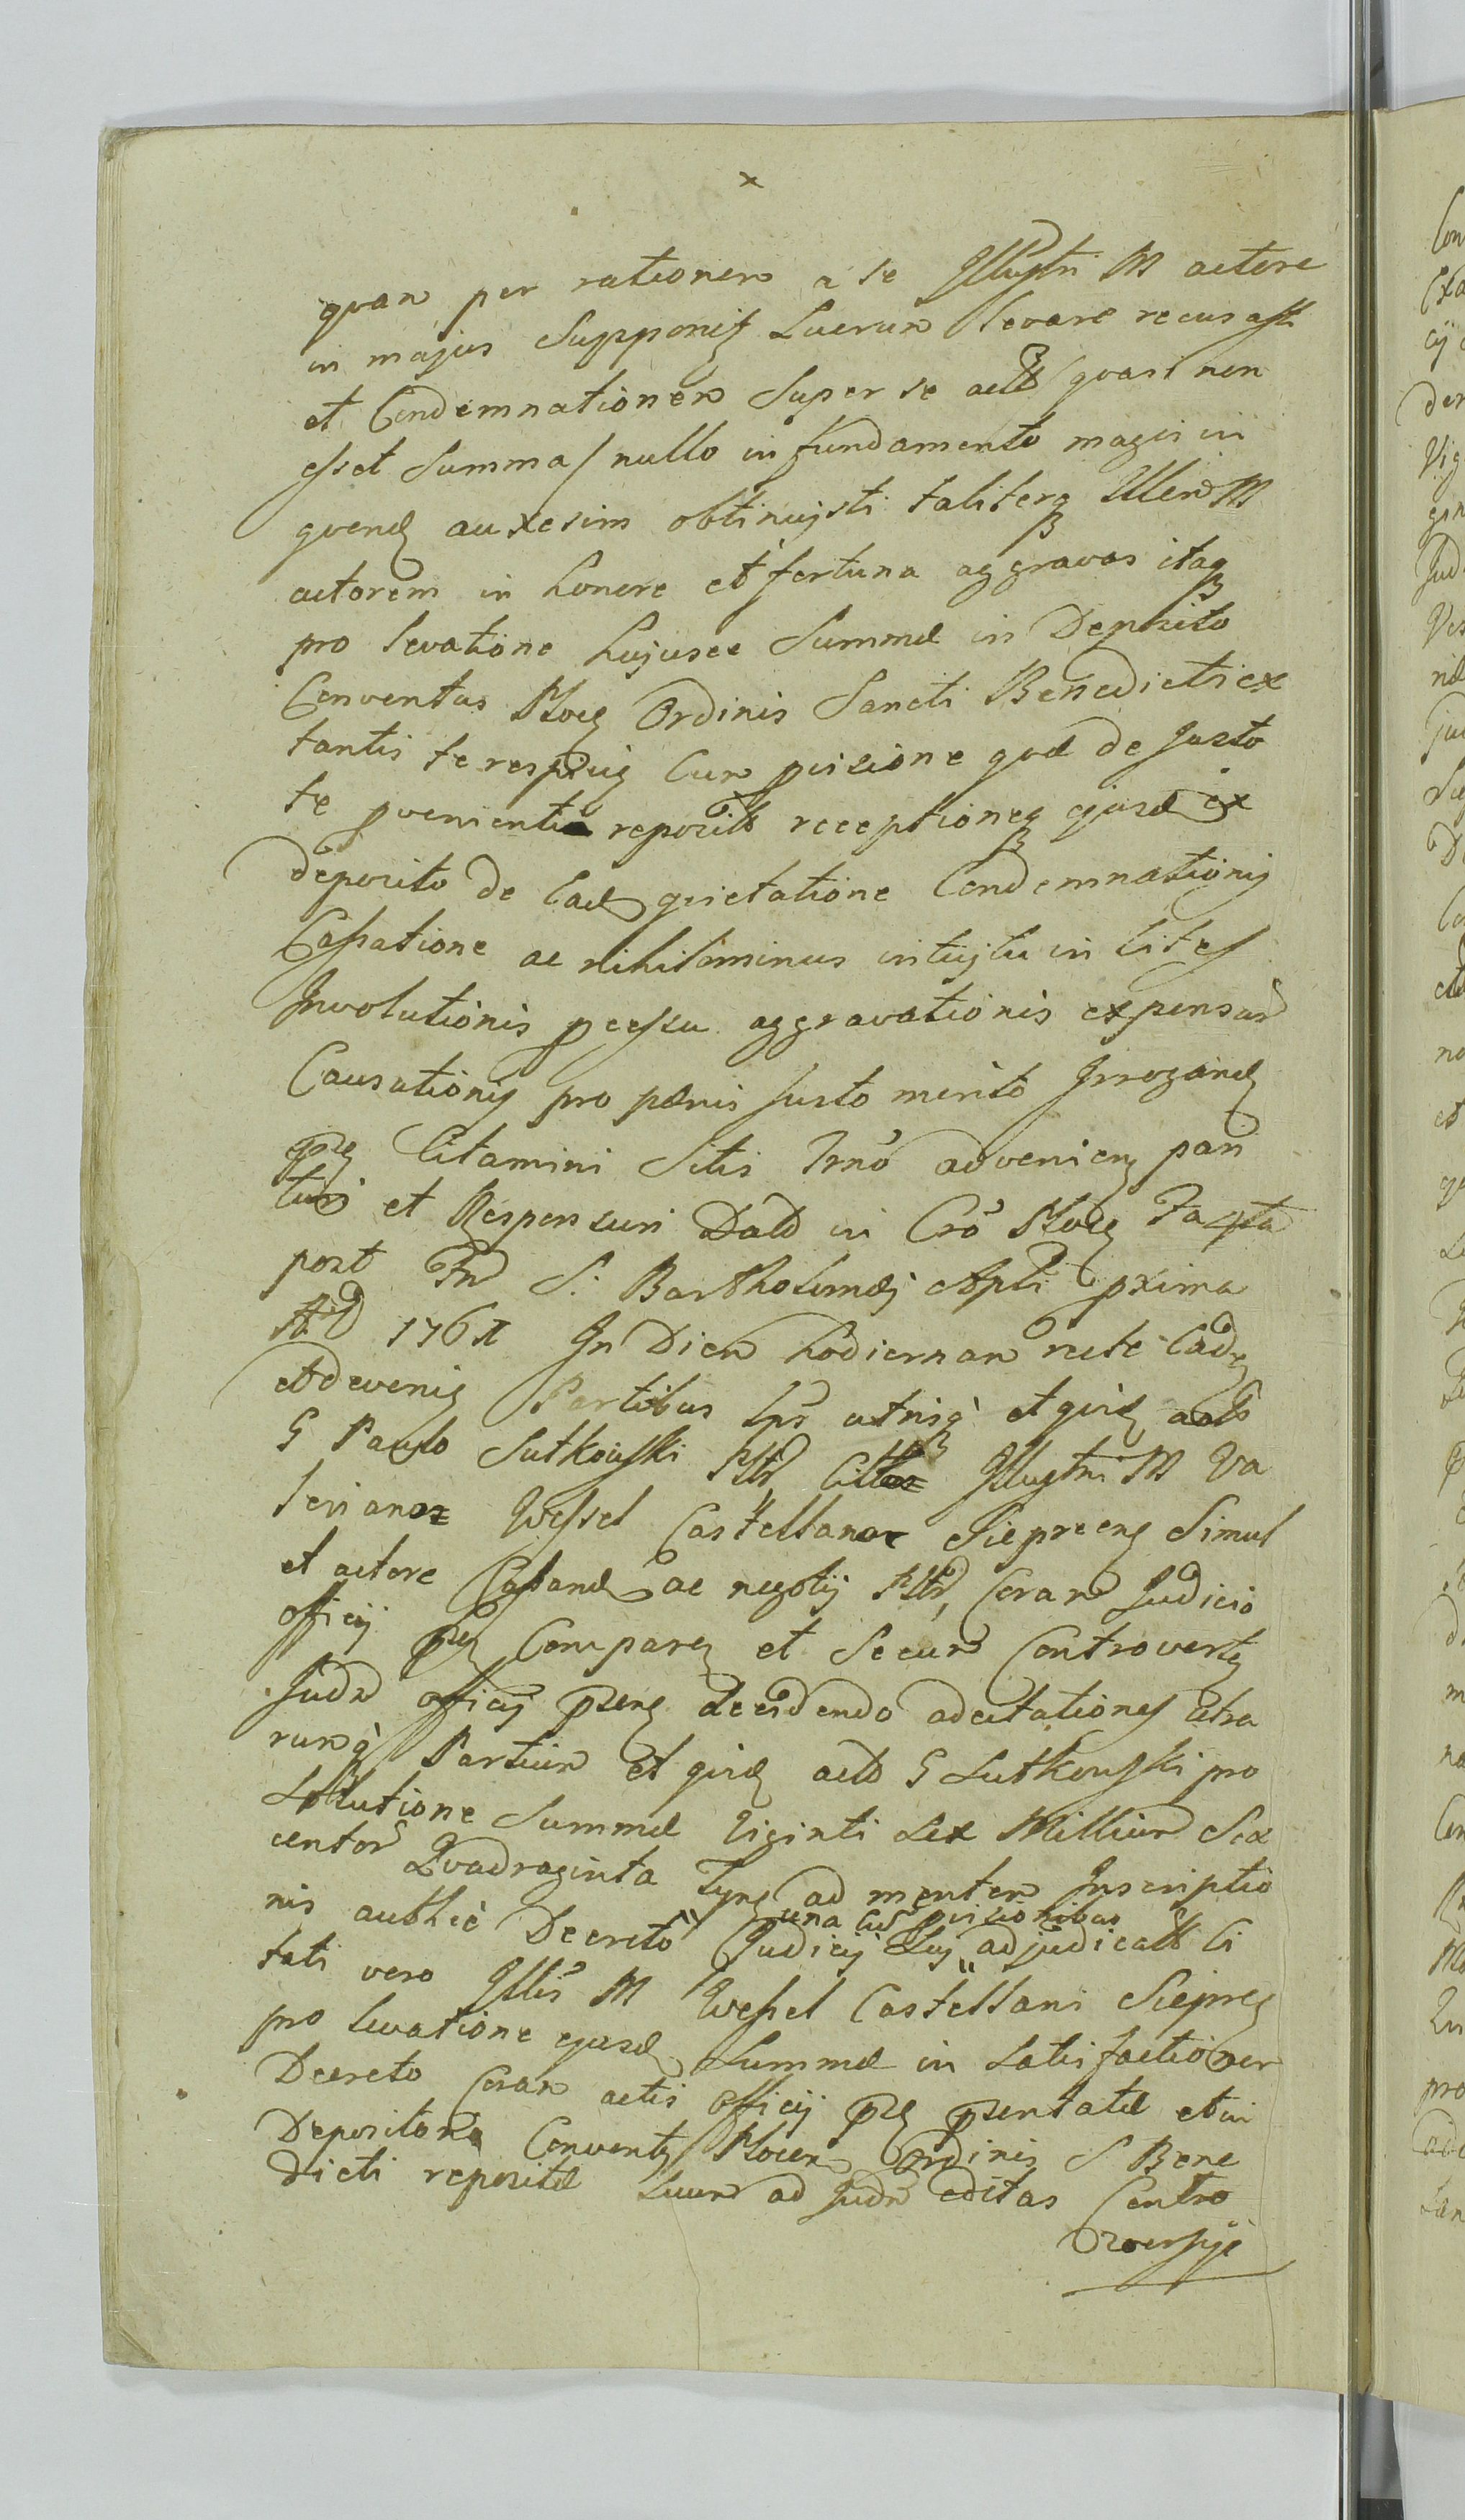 x
quam per rationem a se Illustri M actore
in majus Supponis Lucrum levare recusasti
et Condemnationem Super se actt /quasi non
esset Summa/ nullo in fundamento magis in
quend auxesim obtinuisti taliterq Illem M
actorem in honore et fortuna aggravas itaq
pro levatione hujusce Summæ in Deposito
Conventus Ploc Ordinis Sancti Benedicti ex
tantis te respicien Cum pvisione quæ de Justo
te pvenienti reposit receptioneq ejusd ex
deposito de Ead quietatione Condemnationis
Cassatione ac nihilominus intuitu in lites
Involutionis pcessu aggravationis expensar
Causationis pro pænis Justo merito Irrogand
Citamini Sitis Trno advenien pari
turi et Responsuri Datt in Cro Ploc
post S: Bartholomæi Apli pxima
AD 1761 In Diem hodiernam recte Cad
et deveni Partibus Ipr utrisq et quid actt
G Paulo Lutkowski Citt Illustri M Va
leriano Wessel Castellano Sieprcen Simul
et actore Cassand ac negotii Coram Judicio
officii Comparen et Secum Controverten
Judm officii psens decidendo adcitationes Utra
rumq Partium et quid actt G Lutkowski pro
Solutione Summæ Viginti Sex Millium Sex
centor Quadraginta Tynf ad mentem Inscriptio
una cum pvisionibus
nis authce Decreto Judicii Luj " adjudicatt Ci
tati vero Illis M Wessel Castellani Sieprc
pro levatione ejusd Summæ in Satisfactionem
Decreto Coram actis officii psentatæ et in
Depositorio Convent Plocen Ordinis S Bene
dicti repositæ Suum ad Judm editas Contro
versije